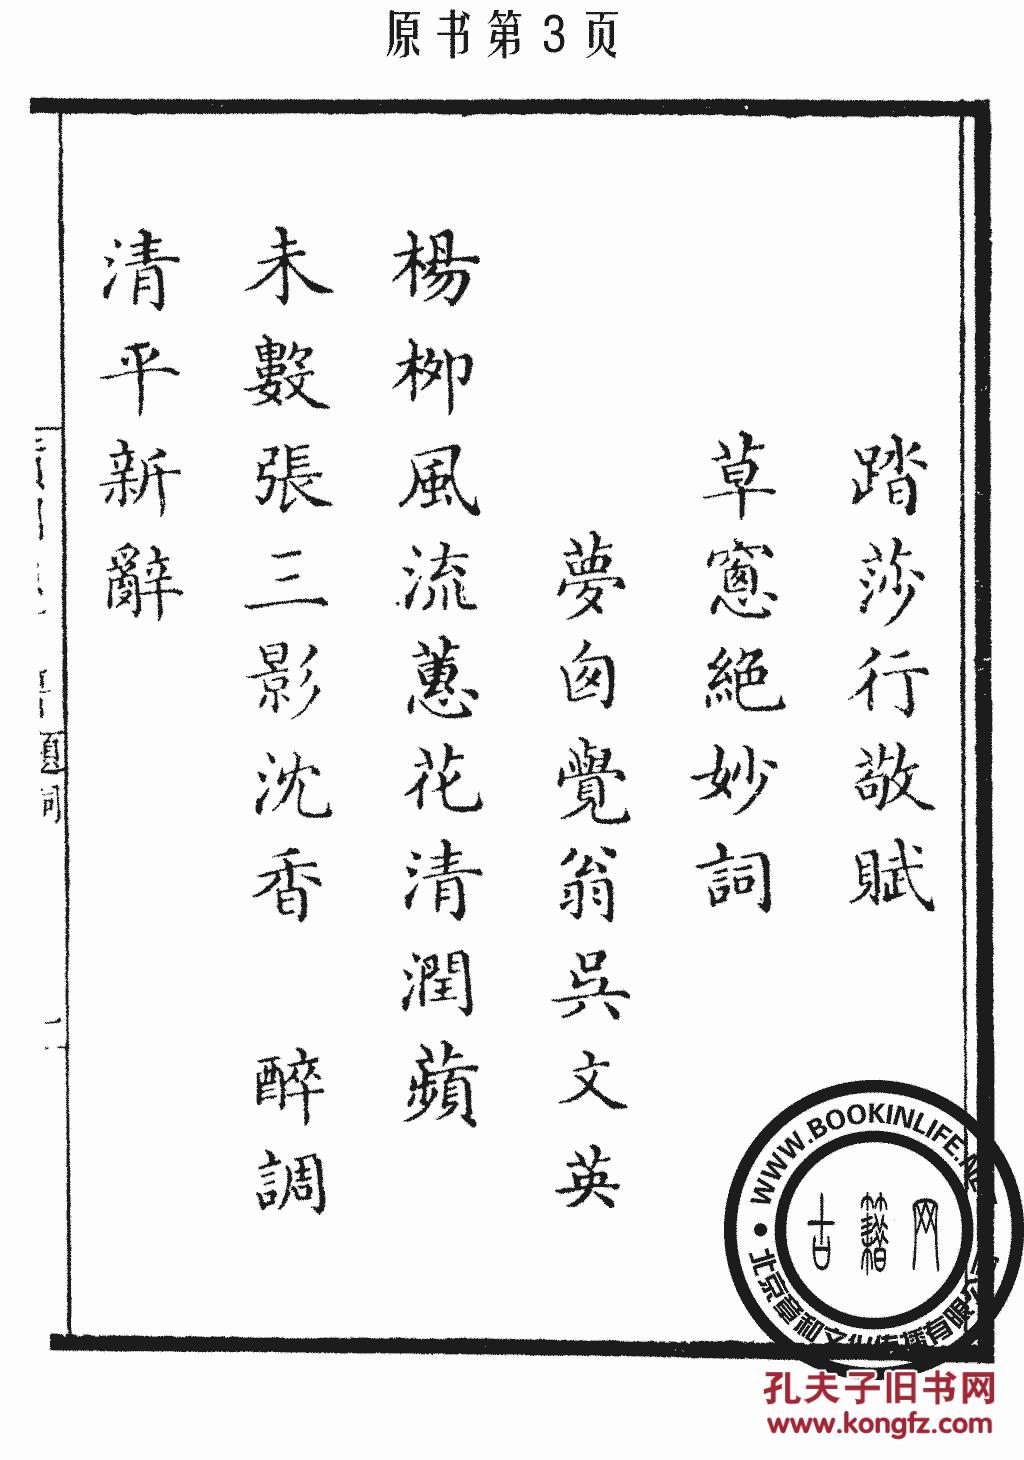 原书第3页
踏莎行敬賦
草窻絕妙詞
夢囱覺翁吳文英
楊柳風流蕙花清潤蘋
未數張三影沈香 醉調
清平新辭
題詞
二
WWW.BOOKINLIFE.NET
古籍网
北京章和文化传播有限公司
孔夫子旧书网
www.kongfz.com